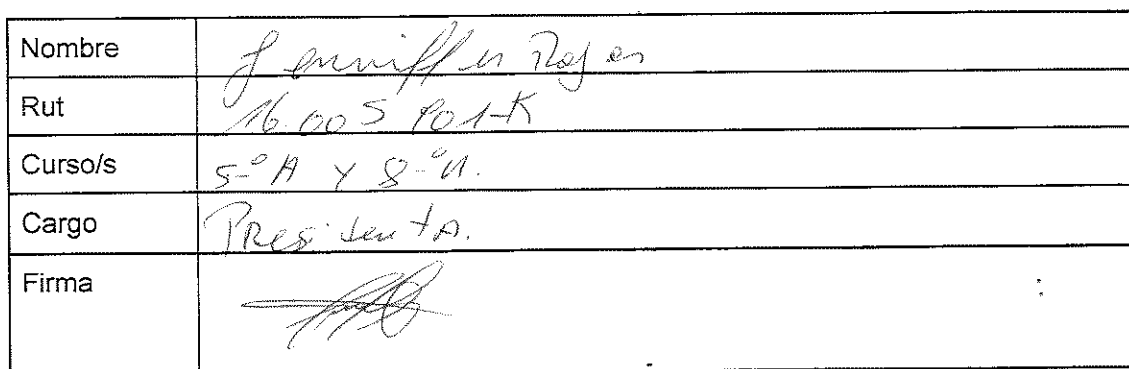 Nombre Jenniffer Rojas
Rut 16.005 901-K
Curso/s 5-°A y 8-°A.
Cargo Presidenta.
Firma